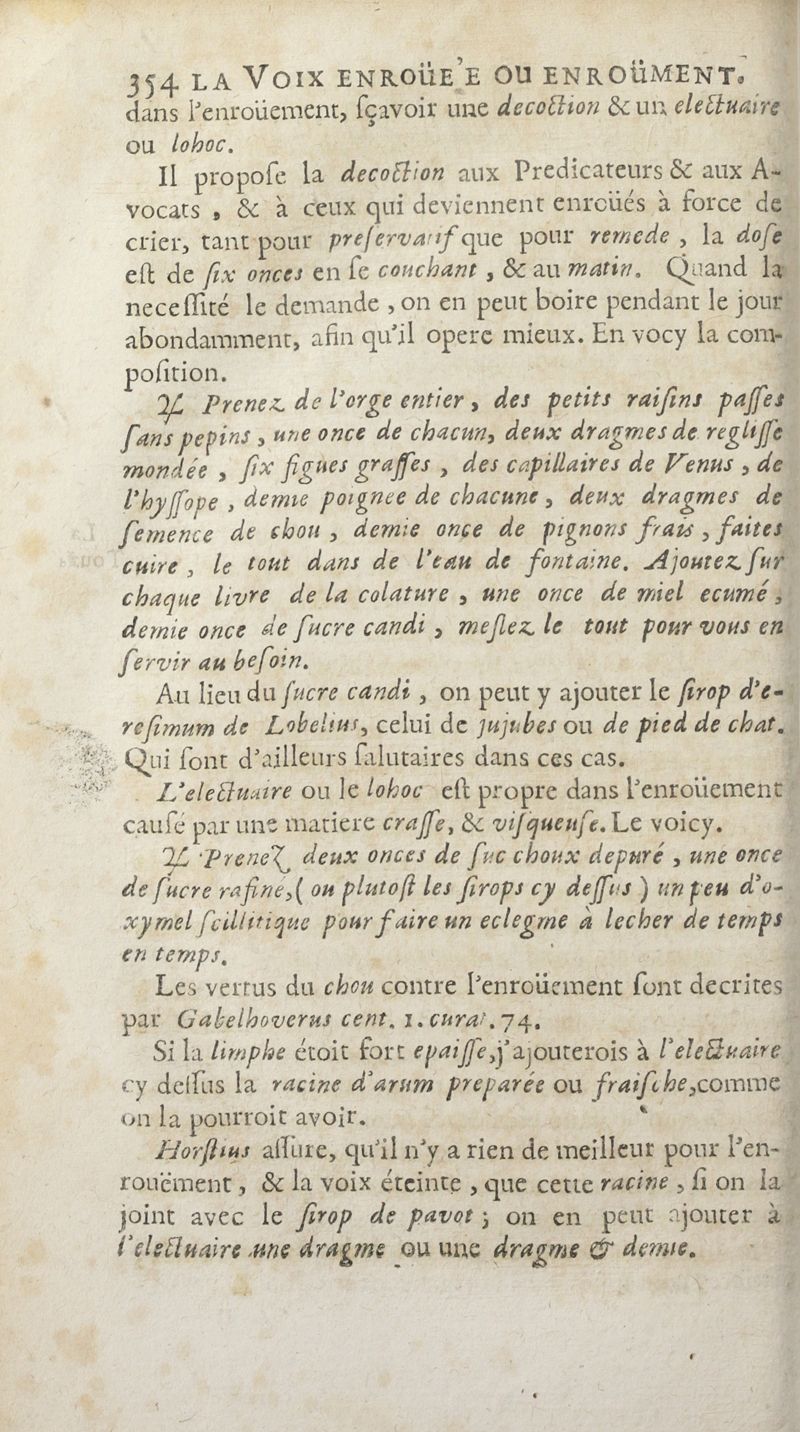 354 LA VOIX ENROÜE'E OU ENROÜMENT.
dans l'enroüement, ſçavoir une decoction & un electuaire
ou lohoc.
Il propoſe la decoction aux Predicateurs & aux A-
vocats , & à ceux qui deviennent enroüés à force de
crier, tant pour preſervatif que pour remede , la doſe
eſt de ſix onces en ſe couchant , & au matin. Quand la
neceſſité le demande , on en peut boire pendant le jour
abondamment, afin qu'il opere mieux. En vocy la com-
poſition.
♃ Prenez de l'orge entier , des petits raiſins paſſes
ſans pepins , une once de chacun, deux dragmes de regliſſe
mondée , ſix figues graſſes , des capillaires de Venus , de
l'hyſſope , demie poignee de chacune , deux dragmes de
ſemence de chou , demie once de pignons frais , faites
cuire , le tout dans de l'eau de fontaine. Ajoutez ſur
chaque livre de la colature , une once de miel ecumé ,
demie once de ſucre candi , meſlez le tout pour vous en
ſervir au beſoin.
Au lieu du ſucre candi , on peut y ajouter le ſirop d'e-
reſimum de Lobelius, celui de jujubes ou de pied de chat.
Qui ſont d'ailleurs ſalutaires dans ces cas.
L'electuaire ou le lohoc eſt propre dans l'enroüement
cauſé par une matiere craſſe, & viſqueuſe. Le voicy.
♃ Prenez deux onces de ſuc choux depuré , une once
de ſucre rafiné,( ou plutoſt les ſirops cy deſſus ) un peu d'o-
xymel ſcillitique pour faire un eclegme à lecher de temps
en temps.
Les vertus du chou contre l'enroüement ſont decrites
par Gabelhoverus cent. 1. curat. 74.
Si la limphe étoit fort epaiſſe,j'ajouterois à l'electuaire
cy deſſus la racine d'arum preparée ou fraiſche,comme
on la pourroit avoir.
Horſtius aſſure, qu'il n'y a rien de meilleur pour l'en-
rouëment , & la voix éteinte , que cette racine , ſi on la
joint avec le ſirop de pavot ; on en peut ajouter à
l'electuaire une dragme ou une dragme & demie.